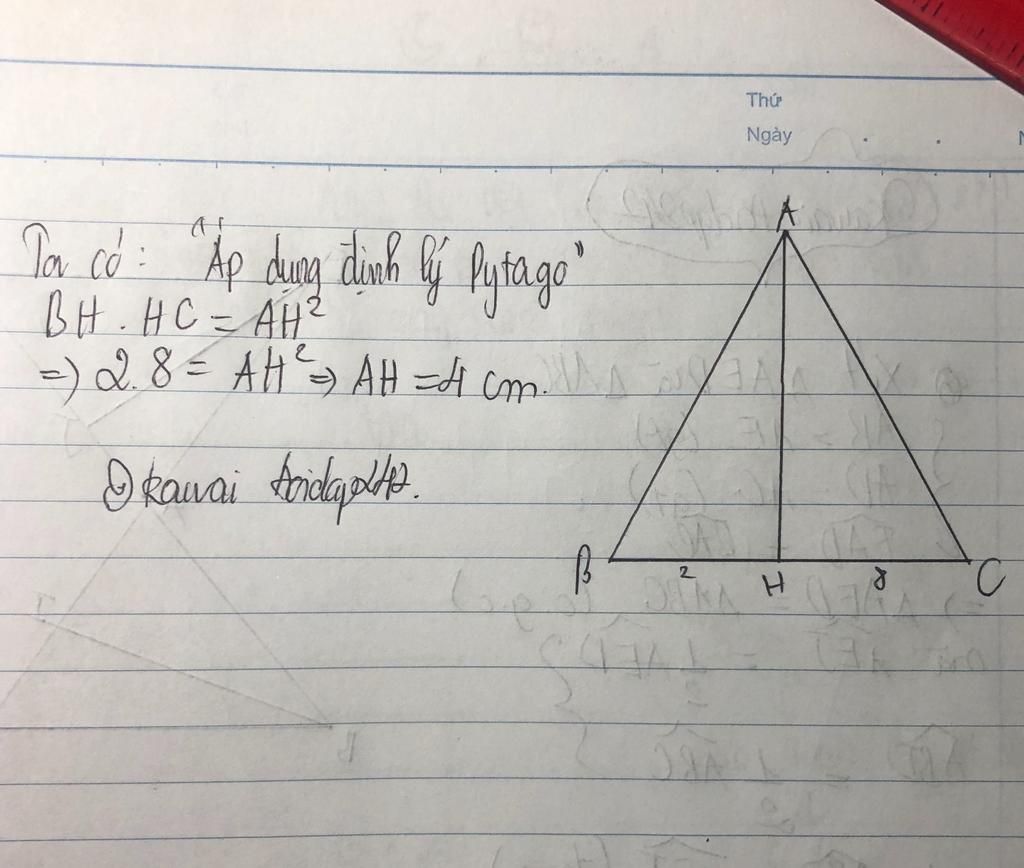 Thứ
Ngày
Ta có: "Áp dụng định lý Pytago"
BH . HC = AH²
=) 2.8 = AH² => AH = 4 cm.
kawai
A
B
2
H
8
C